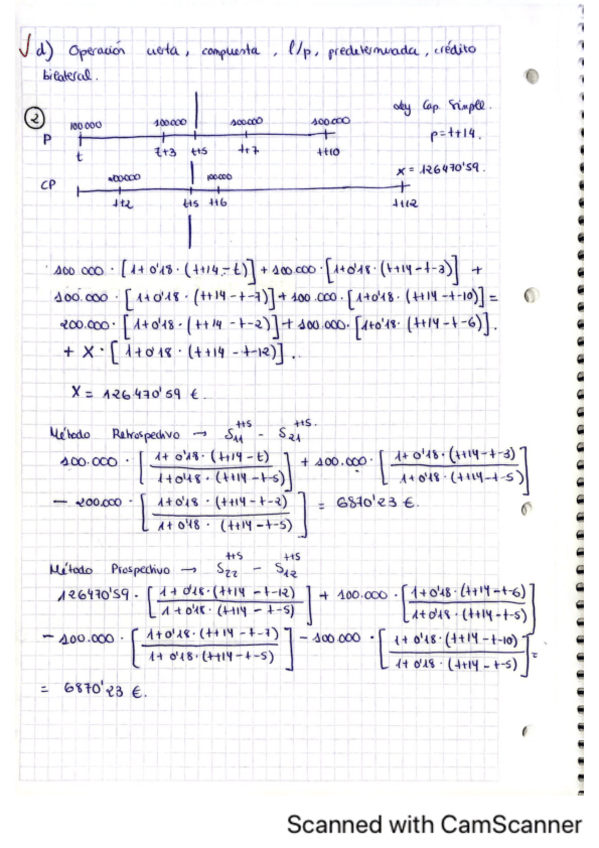 √ d) Operación cierta, compuesta, l/p, predeterminada, crédito
bilateral.
② 100.000 100.000 100.000 100.000 Ley Cap. Simple.
P t t+3 t+5 t+7 t+10 p=t+14.
CP 200.000 100.000 x = 126470'59.
t+2 t+5 t+6 t+12
100 000 · [1+0'18 · (t+14-t)] + 100.000 · [1+0'18 · (t+14-t-3)] +
100.000 · [1+0'18 · (t+14-t-7)] + 100.000 · [1+0'18 · (t+14-t-10)] =
200.000 · [1+0'18 · (t+14-t-2)] + 100.000 · [1+0'18 · (t+14-t-6)].
+ X · [1+0'18 · (t+14-t-12)].
X = 126470'59 €.
t+5 t+5.
Método Retrospectivo → S11 - S21
100.000 · [1+0'18·(t+14-t) / 1+0'18·(t+14-t-5)] + 100.000 · [1+0'18·(t+14-t-3) / 1+0'18·(t+14-t-5)]
- 200.000 · [1+0'18·(t+14-t-2) / 1+0'18·(t+14-t-5)] = 6870'23 €.
t+5 t+5
Método Prospectivo → S22 - S12
126470'59 · [1+0'18·(t+14-t-12) / 1+0'18·(t+14-t-5)] + 100.000 · [1+0'18·(t+14-t-6) / 1+0'18·(t+14-t-5)]
- 100.000 · [1+0'18·(t+14-t-7) / 1+0'18·(t+14-t-5)] - 100.000 · [1+0'18·(t+14-t-10) / 1+0'18·(t+14-t-5)] =
= 6870'23 €.
Scanned with CamScanner